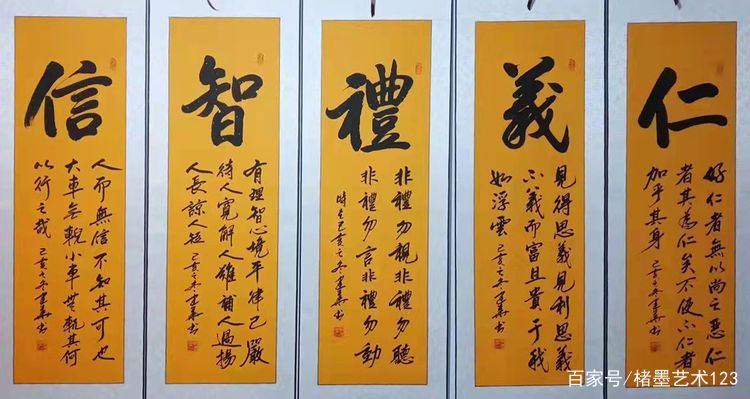 仁
好仁者無以尚之惡仁
者其為仁矣不使不仁者
加乎其身 己亥之冬建華書
義
見得思義見利思義
不義而富且貴于我
如浮雲 己亥之冬建華書
禮
非禮勿視非禮勿聽
非禮勿言非禮勿動
時在己亥之冬建華書
智
有理智心境平律己嚴
待人寬解人難補人過揚
人長諒人短 己亥之冬建華書
信
人而無信不知其可也
大車無輗小車無軏其何
以行之哉 己亥之冬建華書
百家号/楮墨艺术123